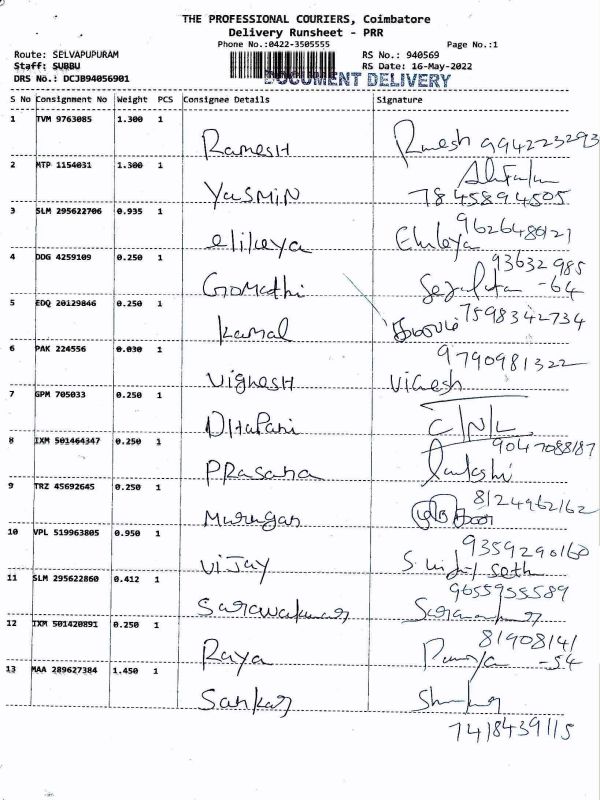 THE PROFESSIONAL COURIERS, Coimbatore
Delivery Runsheet - PRR
Phone No.:0422-3505555 Page No.:1
Route: SELVAPUPURAM RS No.: 940569
Staff: SUBBU RS Date: 16-May-2022
DRS No.: DCJB94056901 DOCUMENT DELIVERY
S No Consignment No Weight PCS Consignee Details Signature
1 TVM 9763085 1.300 1
Ramesh Rmesh 994223293
2 MTP 1154031 1.300 1
Yasmin 7845894505
3 SLM 295622706 0.935 1
elikeya 9626480121
4 DDG 4259109 0.250 1
Gomathi 93632985 -64
5 EDQ 20129846 0.250 1
Kamal 7598342734
6 PAK 224556 0.030 1
9790981322
Vighesh Vighesh
7 GPM 705033 0.250 1
Dhapani C/N/L
8 IXM 501464347 0.250 1
9047088187
Prasana
9 TRZ 45692645 0.250 1
8124962162
Murugan
10 VPL 519963805 0.950 1
9359290160
Vijay
11 SLM 295622860 0.412 1
9655955589
Sarawakumar
12 IXM 501420891 0.250 1
81908141
Raya -54
13 MAA 289627384 1.450 1
Sankar
7418439115